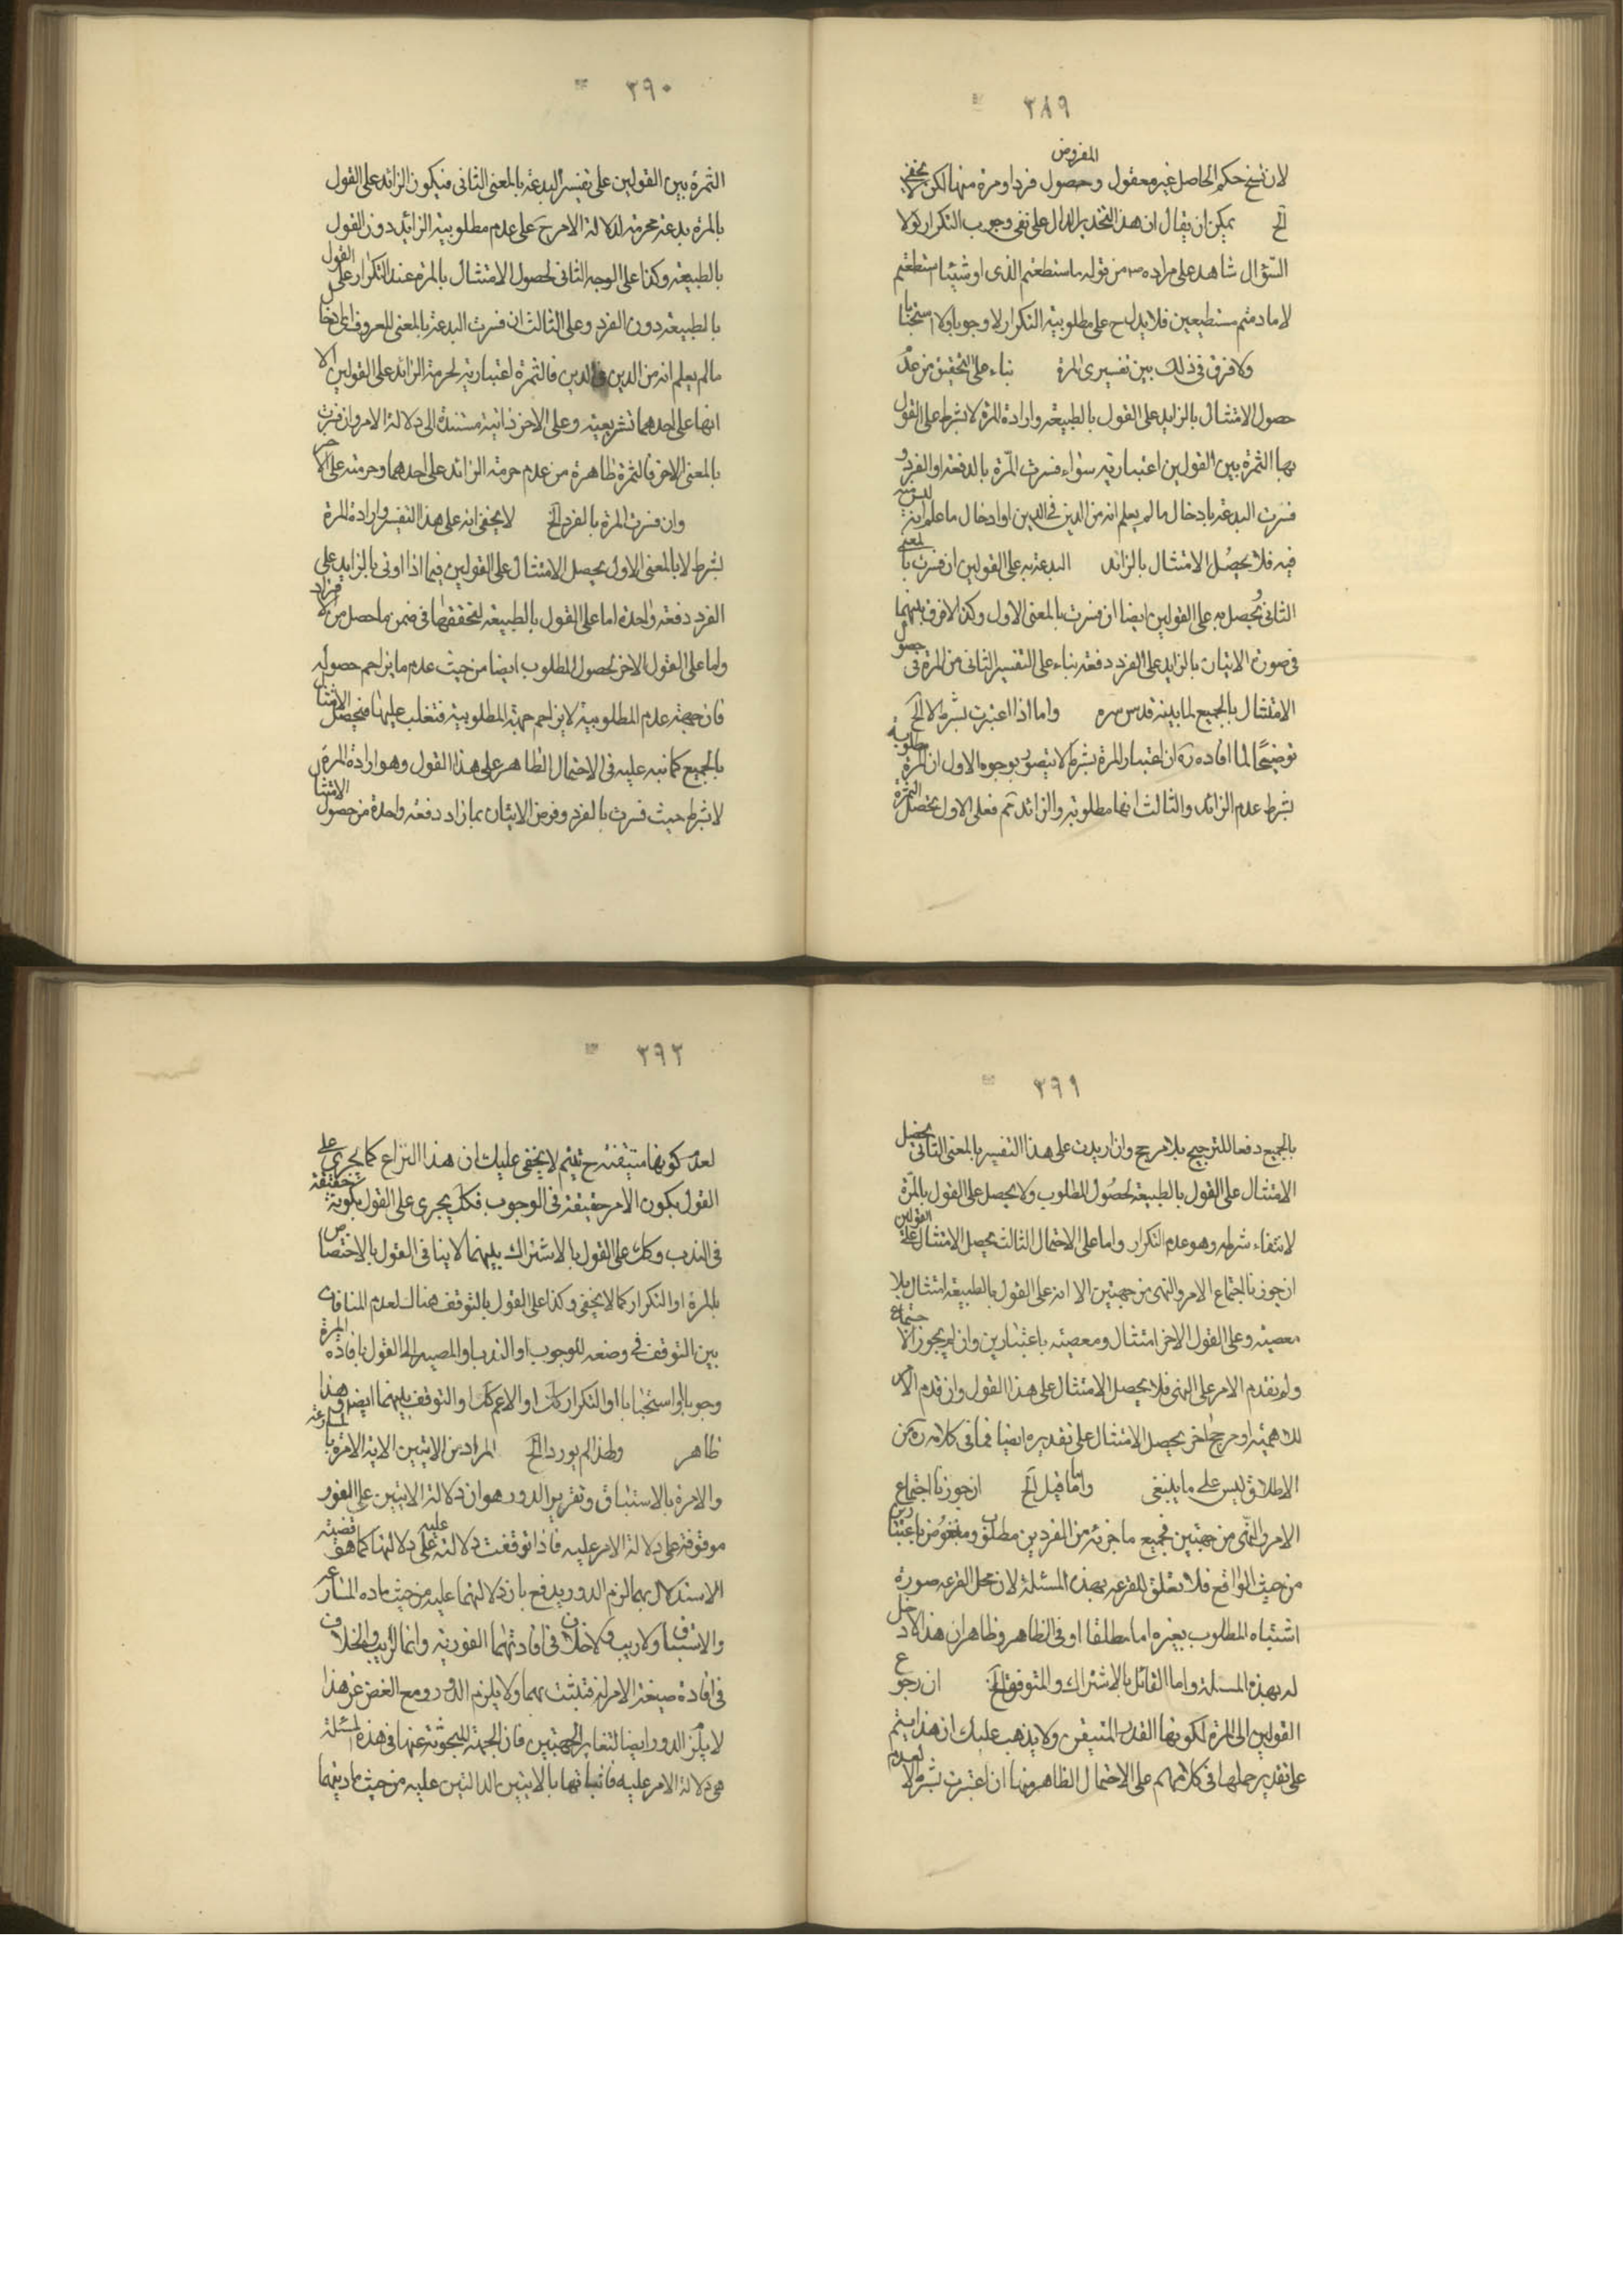 ٣٨٩
المفروض
لان نسخ حكم الحاصل غير معقول وحصول فرد او مرة منها لكن يخفى
الخ يمكن ان يقال ان هذا التحذير الدال على نفى وجوب التكرار لولا
السؤال شاهد على مراده من قوله ما استطعتم الذى او شيئا استطعتم
لا ما دمتم مستطيعين فلا يدل ح على مطلوبية التكرار لا وجوبا ولا استحبابا
ولا فرق فى ذلك بين تفسيرى المرة بناء على التحقيق من عدم
حصول الامتثال بالزايد على القول بالطبيعة وارادة المرة لا بشرط على القول
بها الثمرة بين القولين اعتبارية سواء فسرت المرة بالدفعة او الفرد و
فسرت البدعة بادخال ما لم يعلم انه من الدين فى الدين او ادخال ما علم انه ليس منه
فيه فلا يحصل الامتثال بالزائد البدعة به على القولين ان فسرت بالمعنى
الثانى يحصل به على القولين ايضا ان فسرت بالمعنى الاول وكذا لا فرق بينهما
فى صورة الاتيان بالزايد على الفرد دفعة بناء على التفسير الثانى من المرة فى حصول
الامتثال بالجميع لما بينه قدس سره واما اذا اعتبرت بشرط لا الخ
توضيحا لما افاده ره ان اعتبار المرة بشرط لا يتصور بوجوه الاول ان المرة مطلوبة
بشرط عدم الزائد والثالث انها مطلوبة والزائد ثم فعلى الاول يحصل الثمرة
٣٩٠
الثمرة بين القولين على تفسير البدعة بالمعنى الثانى فيكون الزائد على القول
بالمرة بدعة محرمة لدلالة الامر ح على عدم مطلوبية الزائد دون القول
بالطبيعة وكذا على الوجه الثانى لحصول الامتثال بالمرة عند التكرار على القول
بالطبيعة دون الفرد وعلى الثالث ان فسرت البدعة بالمعنى المعروف اى ادخال
ما لم يعلم انه من الدين فى الدين فالثمرة اعتبارية لحرمة الزائد على القولين الا
انها على احدهما تشريعية وعلى الاخر ذاتية مستندة الى دلالة الامر وان فسرت
بالمعنى الاخر فالثمرة ظاهرة من عدم حرمة الزائد على احدهما وحرمته على الاخر
وان فسرت المرة بالفرد الخ لا يخفى انه على هذا التفسير وارادة المرة
بشرط لا بالمعنى الاول يحصل الامتثال على القولين فيما اذا اوتى بالزايد على
الفرد دفعة واحدة اما على القول بالطبيعة لتحققها فى ضمن ما حصل من الافراد
واما على القول الاخر لحصول المطلوب ايضا من حيث عدم ما يزاحم حصوله
فان جهة عدم المطلوبية لا يزاحم جهة المطلوبية فتغلب عليها فيحصل الامتثال
بالجميع كما نبه عليه فى الاحتمال الظاهر على هذا القول وهو ارادة المرة
لا بشرط حيث فسرت بالفرد وفرض الاتيان بما زاد دفعة واحدة من حصول الامتثال
٣٩١
بالجميع دفعا للترجيح بلا مرجح وان اريدت على هذا التفسير بالمعنى الثانى يحصل
الامتثال على القول بالطبيعة لحصول المطلوب ولا يحصل على القول بالمرة
لانتفاء شرطه وهو عدم التكرار واما على الاحتمال الثالث يحصل الامتثال على القولين
ان جوزنا اجتماع الامر والنهى من جهتين الا انه على القول بالطبيعة امتثال بلا
معصية وعلى القول الاخر امتثال ومعصية باعتبارين وان لم يجوز الاجتماع
ولم نقدم الامر على النهى فلا يحصل الامتثال على هذا القول وان قدم الامر
للاهمية او مرجح اخر يحصل الامتثال على تقديره ايضا فما فى كلامه ره من
الاطلاق ليس على ما ينبغى واما ما قيل الخ ان جوزنا اجتماع
الامر والنهى من جهتين فجميع ما خرته من الفردين مطلوب ومبغوض باعتبارين
من حيث الواقع فلا تعلق للقرعة بهذه المسئلة لان محل القرعة صورة
اشتباه المطلوب بغيره اما مطلقا او فى الظاهر وظاهر ان هذا لا دخل
له بهذه المسئلة واما القائل بالاشتراك والمتوقف الخ ان رجوع
القولين الى المرة لكونها القدر المتيقن ولا يذهب عليك ان هذا يتم
على تقدير حملها فى كلامهم على الاحتمال الظاهر منها ان اعتبرت بشرط لا لعدم
٣٩٢
لعدم كونها متيقنة ح تتيم لا يخفى عليك ان هذا النزاع كما يجرى على
القول بكون الامر حقيقة فى الوجوب فكك يجرى على القول بكونه حقيقة
فى الندب وكك على القول بالاشتراك بينهما لا ينافى القول بالاختصاص
بالمرة او التكرار كما لا يخفى وكذا على القول بالتوقف هناك لعدم المنافاة
بين التوقف فى وضعه للوجوب او الندب او المصير الى القول بافادة المرة
وجوبا او استحبابا او التكرار كك او الاعم كك او التوقف بينهما ايضا وهذا
ظاهر ولهذا لم يورد الخ المراد من الايتين الاية الامرة بالمسارعة
والامرة بالاستباق وتقرير الدور هو ان دلالة الايتين على الفور
موقوفة على دلالة الامر عليه فاذا توقفت دلالته عليه على دلالتها كما هو قضية
الاستدلال بهما لزم الدور يدفع بان دلالتهما عليه من حيث ماده المسارعة
والاستباق ولا ريب ولا خلاف فى افادتهما الفورية وانما الريب والخلاف
فى افادة صيغة الامر له فتثبت بهما ولا يلزم الدور ومع الغض عن هذا
لا يلزم الدور ايضا لتغاير الجهتين فان الجهة المبحوثة عنها فى هذه المسئلة
هى دلالة الامر عليه فاثباتها بالايتين الدالتين عليه من حيث مادتهما